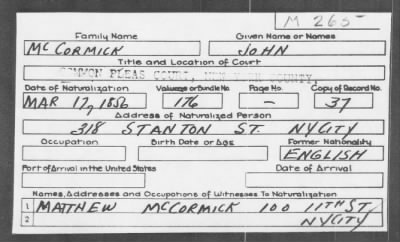 M 265
Family Name Given Name or Names
MC CORMICK JOHN
Title and Location of Court
COMMON PLEAS COURT, NEW YORK COUNTY,
Date of Naturalization Volume or Bundle No. Page No. Copy of Record No.
MAR 17, 1856 176 - 37
Address of Naturalized Person
318 STANTON ST. NYCITY
Occupation Birth Date or Age Former Nationality
ENGLISH
Port of Arrival in the United States Date of Arrival
Names, Addresses and Occupations of Witnesses To Naturalization
1 MATTHEW MCCORMICK 100 11TH ST.
2 NYCITY